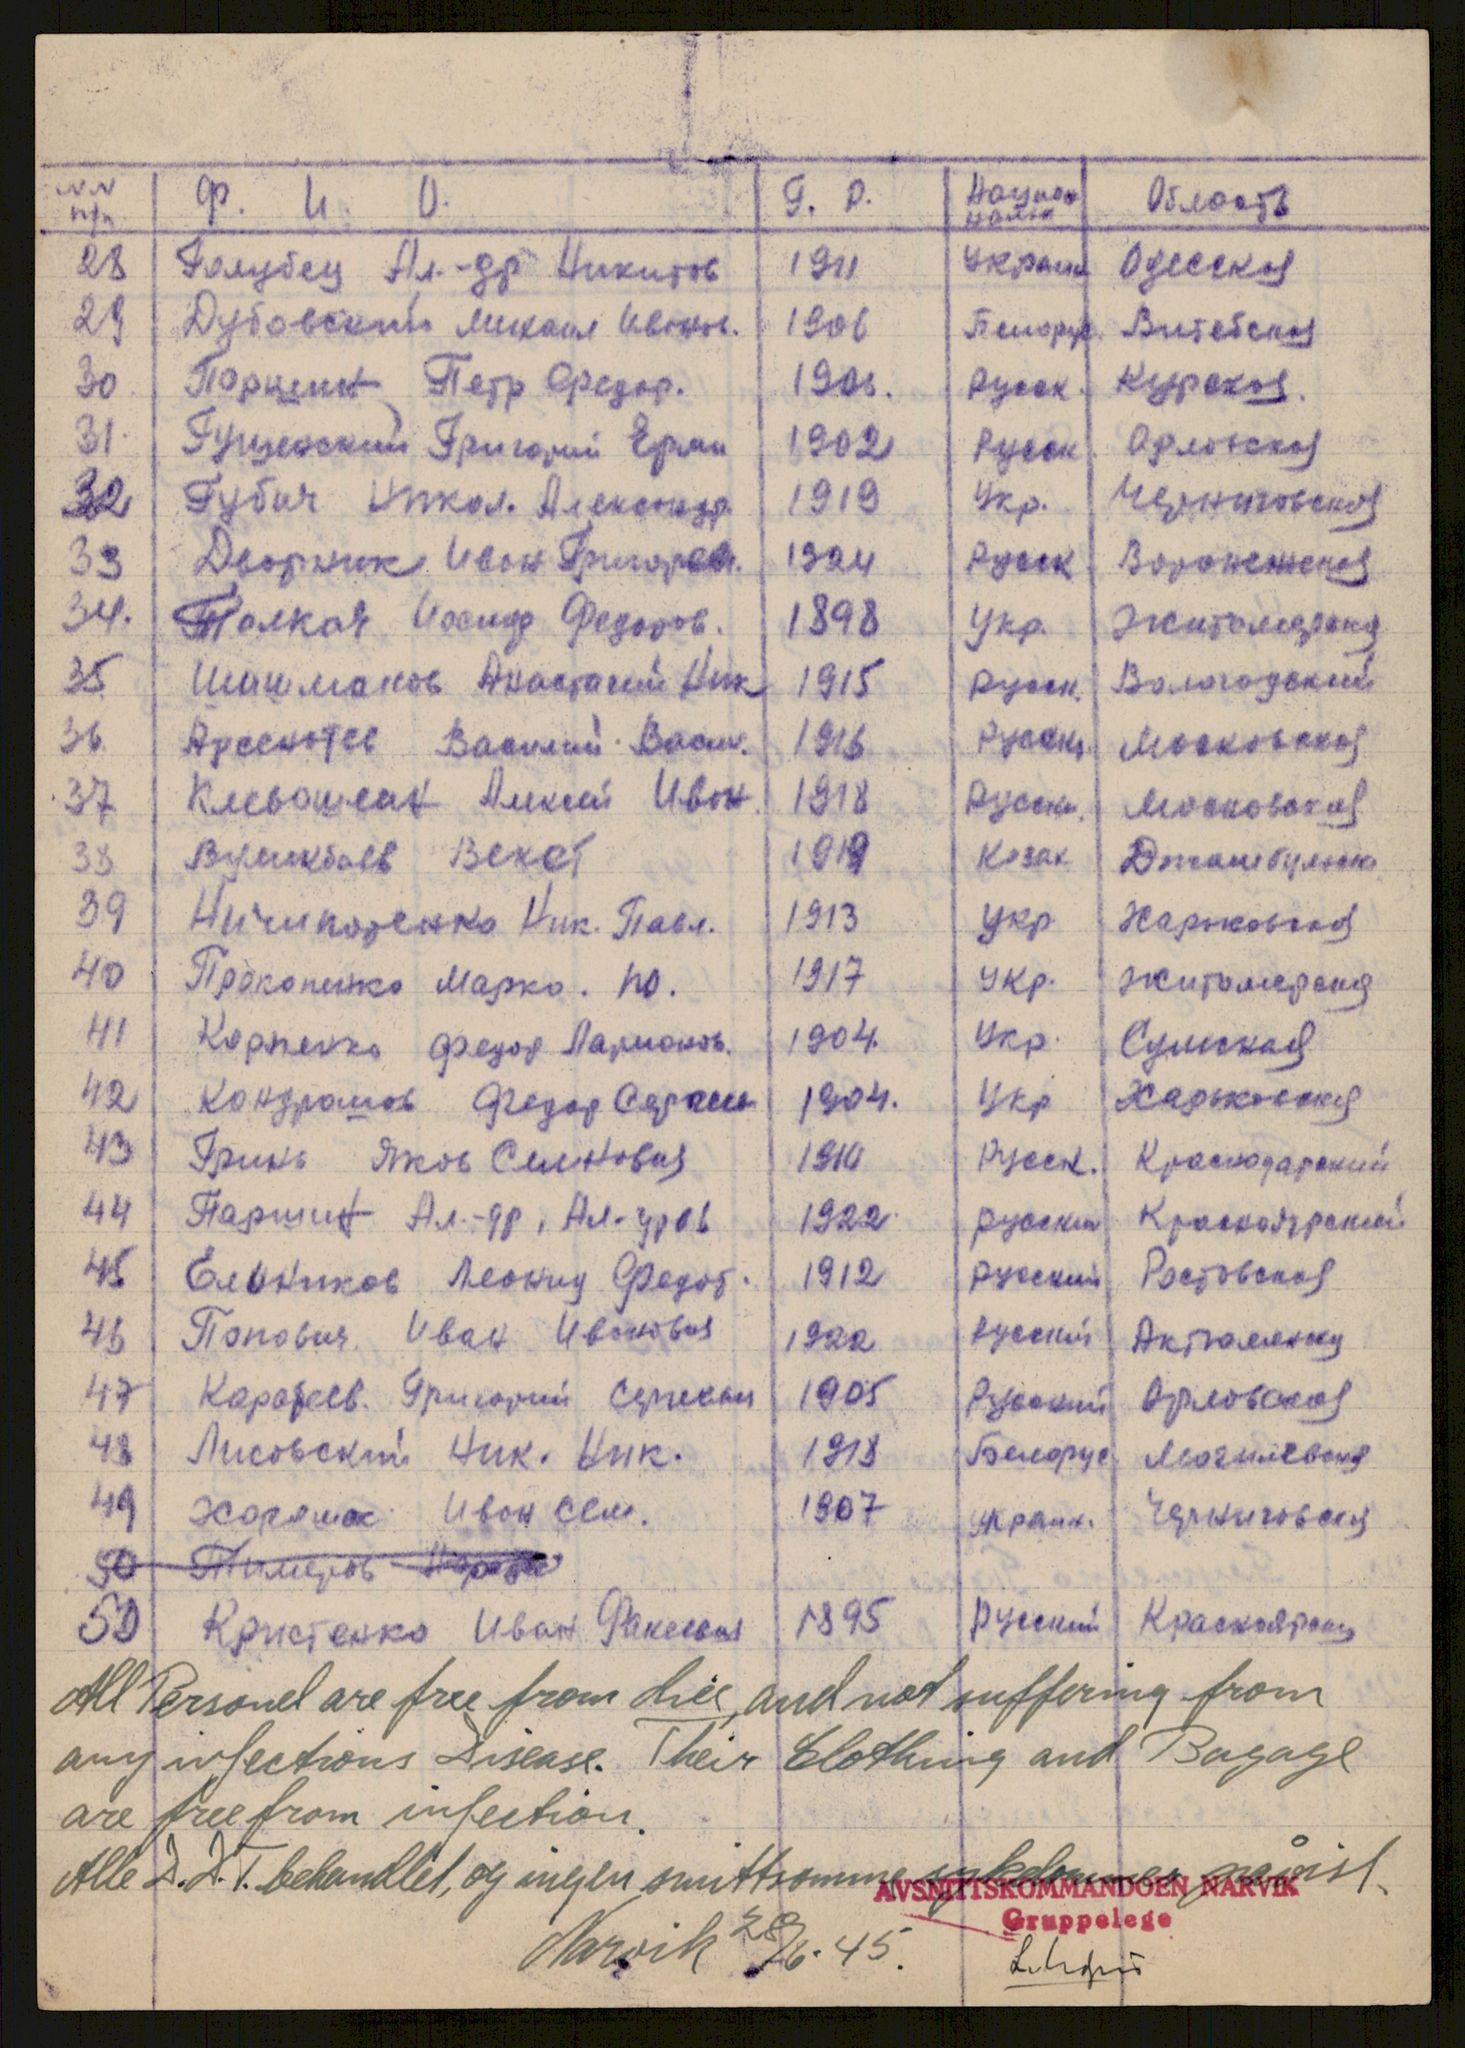 №№ п/п Ф. И. О. Г. Р. Национальн Область
28 Голубец Ал.-др Никитов 1911 Украин Одесская
29 Дубовский Михаил Иванов. 1906 Белорус. Витебская
30 Паршин Петр Федор. 1906. Русск. Курская.
31. Григорий 1902 Русск. Орловская
32 Губич Никол. Александр. 1919 Укр. Черниговская
33 Дворник Иван Григорев. 1924 Русск Воронежская
34. Толкач Иосиф Федоров. 1898 Укр. Житомирская
35 Шашмаков Анастасий Ник 1915 Русск. Вологодский
36 Василий Васил. 1916 Русски. Московская
37 Алексей Иван. 1918 Русски. Московская
38 1919 Казах
39 Ничипоренко Ник. Павл. 1913 Укр Харьковская
40 Прокопенко Марко. Ю. 1917 Укр. Житомирская
41 Карпенко Федор Ларионов. 1904. Укр. Сумская
42 Кондрашов Федор 1904. Укр Харьковская
43 Гринь Яков Семнович 1910 Русск. Краснодарский
44 Паршин Ал.-др, Ал-дров 1922 Русский Красноярский
45 Ельников Леонид Федот. 1912 Русский Ростовская
46 Попович Иван Иванович 1922 Русский
47 Каратеев. Григорий Сергеевич 1905 Русский Орловская
48 Лисовский Ник. Ник. 1918 Белорус. Могилевская
49 Иван Сем. 1907 Украин. Черниговская
50 Тимеров
50 Кристенко Иван 1895 Русский Красноярск
All Personel are free from lice, and not suffering from
any infections Disease. Their Clothing and Bagage
are free from infection.
Alle D.D.T. behandlet, og ingen smittsomme sykdommer påvist.
AVSNITTSKOMMANDOEN NARVIK
Gruppelege
Narvik 28/6. 45.